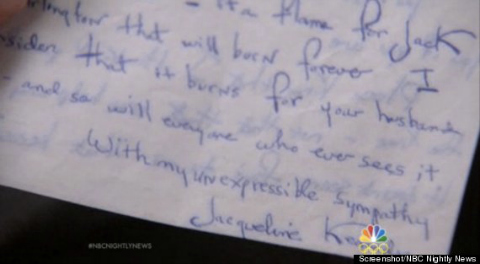 - It a flame for Jack
that will burn forever I
that it burns for your husband
- and so will everyone who ever sees it
With my unexpressible sympathy
Jacqueline
#NBCNIGHTLYNEWS
Screenshot/NBC Nightly News